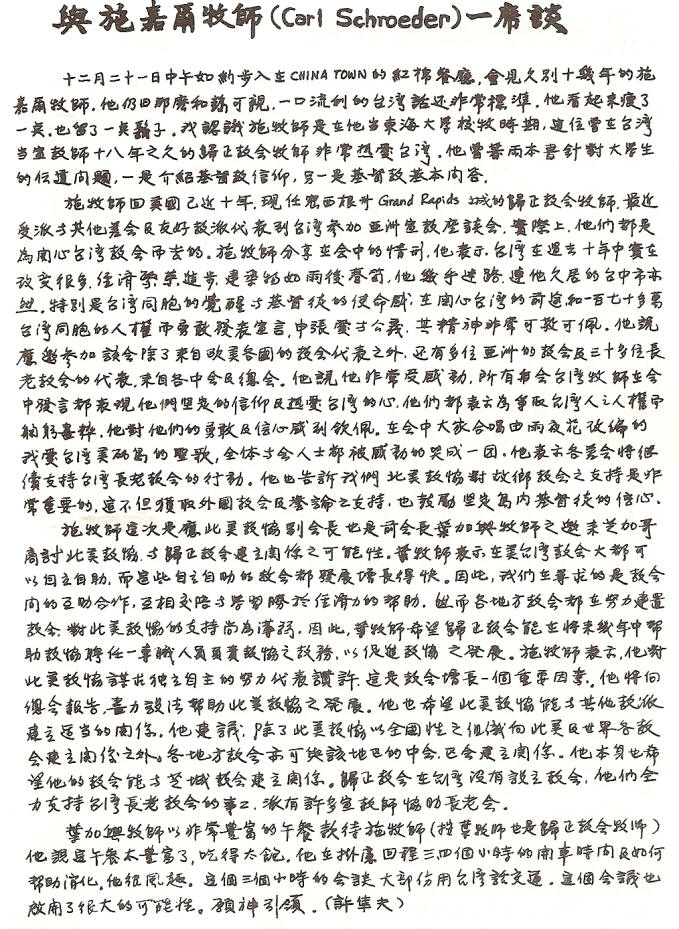 與施嘉爾牧師(Carl Schroeder)一席談
十二月二十一日中午如約步入在CHINA TOWN的紅棉餐廳,會見久別十幾年的施
嘉爾牧師。他仍舊那麼和藹可親,一口流利的台湾話还非常標準。他看起來瘦了
一些,也留了一些鬍子。我認識施牧師是在他当東海大学校牧時期,這位曾在台湾
当宣教師十八年之久的歸正教会牧師非常热愛台湾。他曾著兩本書針對大学生
的信道問題,一是介紹基督教信仰,另一是基督教基本內容。
施牧師回美國已近十年,現任密西根州Grand Rapids城的歸正教会牧師,最近
受派与其他差会及友好教派代表到台湾参加亞洲宣教座談会,實際上,他們都是
為関心台湾教会而去的。施牧師分享在会中的情形,他表示台湾在過去十年中實在
改变很多,经濟繁荣進步,建築物如雨後春筍,他幾乎迷路,連他久居的台中市亦
然。特別是台湾同胞的覺醒与基督徒的使命感,在関心台湾的前途和一百七十多萬
台湾同胞的人權而勇敢發表宣言,申張愛与公義,其精神非常可敬可佩。他說
應邀参加談会除了來自欧美各國的教会代表之外,还有多位亞洲的教会及三十多位長
老教会的代表,來自各中会及總会。他說他非常受感动,所有與会台湾牧師在会
中發言都表現他們堅定的信仰及热愛台湾的心,他們都表示為爭取台湾人之人權而
鞠躬盡粹,他對他們的勇敢及信心感到欽佩。在会中大家合唱由雨夜花改编的
我愛台湾美麗島的聖歌,全体与会人士都被感动的哭成一团。他表示各差会將继
續支持台湾長老教会的行动。他也告訴我們北美教協對故鄉教会之支持是非
常重要的,這不但獲取外國教会及輿論之支持,也鼓勵堅定島內基督徒的信心。
施牧師這次是應北美教協副会長也是前会長葉加興牧師之邀來芝加哥
商討北美教協与歸正教会建立関係之可能性。葉牧師表示在美台湾教会大都可
以自立自助,而這些自立自助的教会都發展增長得快。因此,我們在尋求的是教会
間的互助合作,互相交陪与学習勝於经濟力的幫助。然而各地方教会都在努力建置
教会,對北美教協的支持尚為薄弱,因此,葉牧師希望歸正教会能在將來幾年中幫
助教協聘任一專職人員負責教協之教務,以促進教協之發展。施牧師表示,他對
北美教協謀求独立自主的努力代表讚許,這是教会增長一個重要因素。他將向
總会報告,盡力設法幫助北美教協之發展。他也希望北美教協能与其他教派
建立適当的関係。他建議,除了北美教協以全國性之组織向北美及世界各教
会建立関係之外,各地方教会亦可與該地区的中会,区会建立関係。他本身也希
望他的教会能与芝城教会建立関係。歸正教会在台湾沒有設立教会,他們全
力支持台湾長老教会的事工,派有許多宣教師協助長老会。
葉加興牧師以非常豐富的午餐款待施牧師(按葉牧師也是歸正教会牧師)
他說這午餐太豐富了,吃得太飽。他在掛慮回程三四個小時的開車時间及如何
幫助消化,他很風趣。這個三個小時的会談大部份用台湾話交通。這個会議也
啟開了很大的可能性。願神引領。(許隼夫)